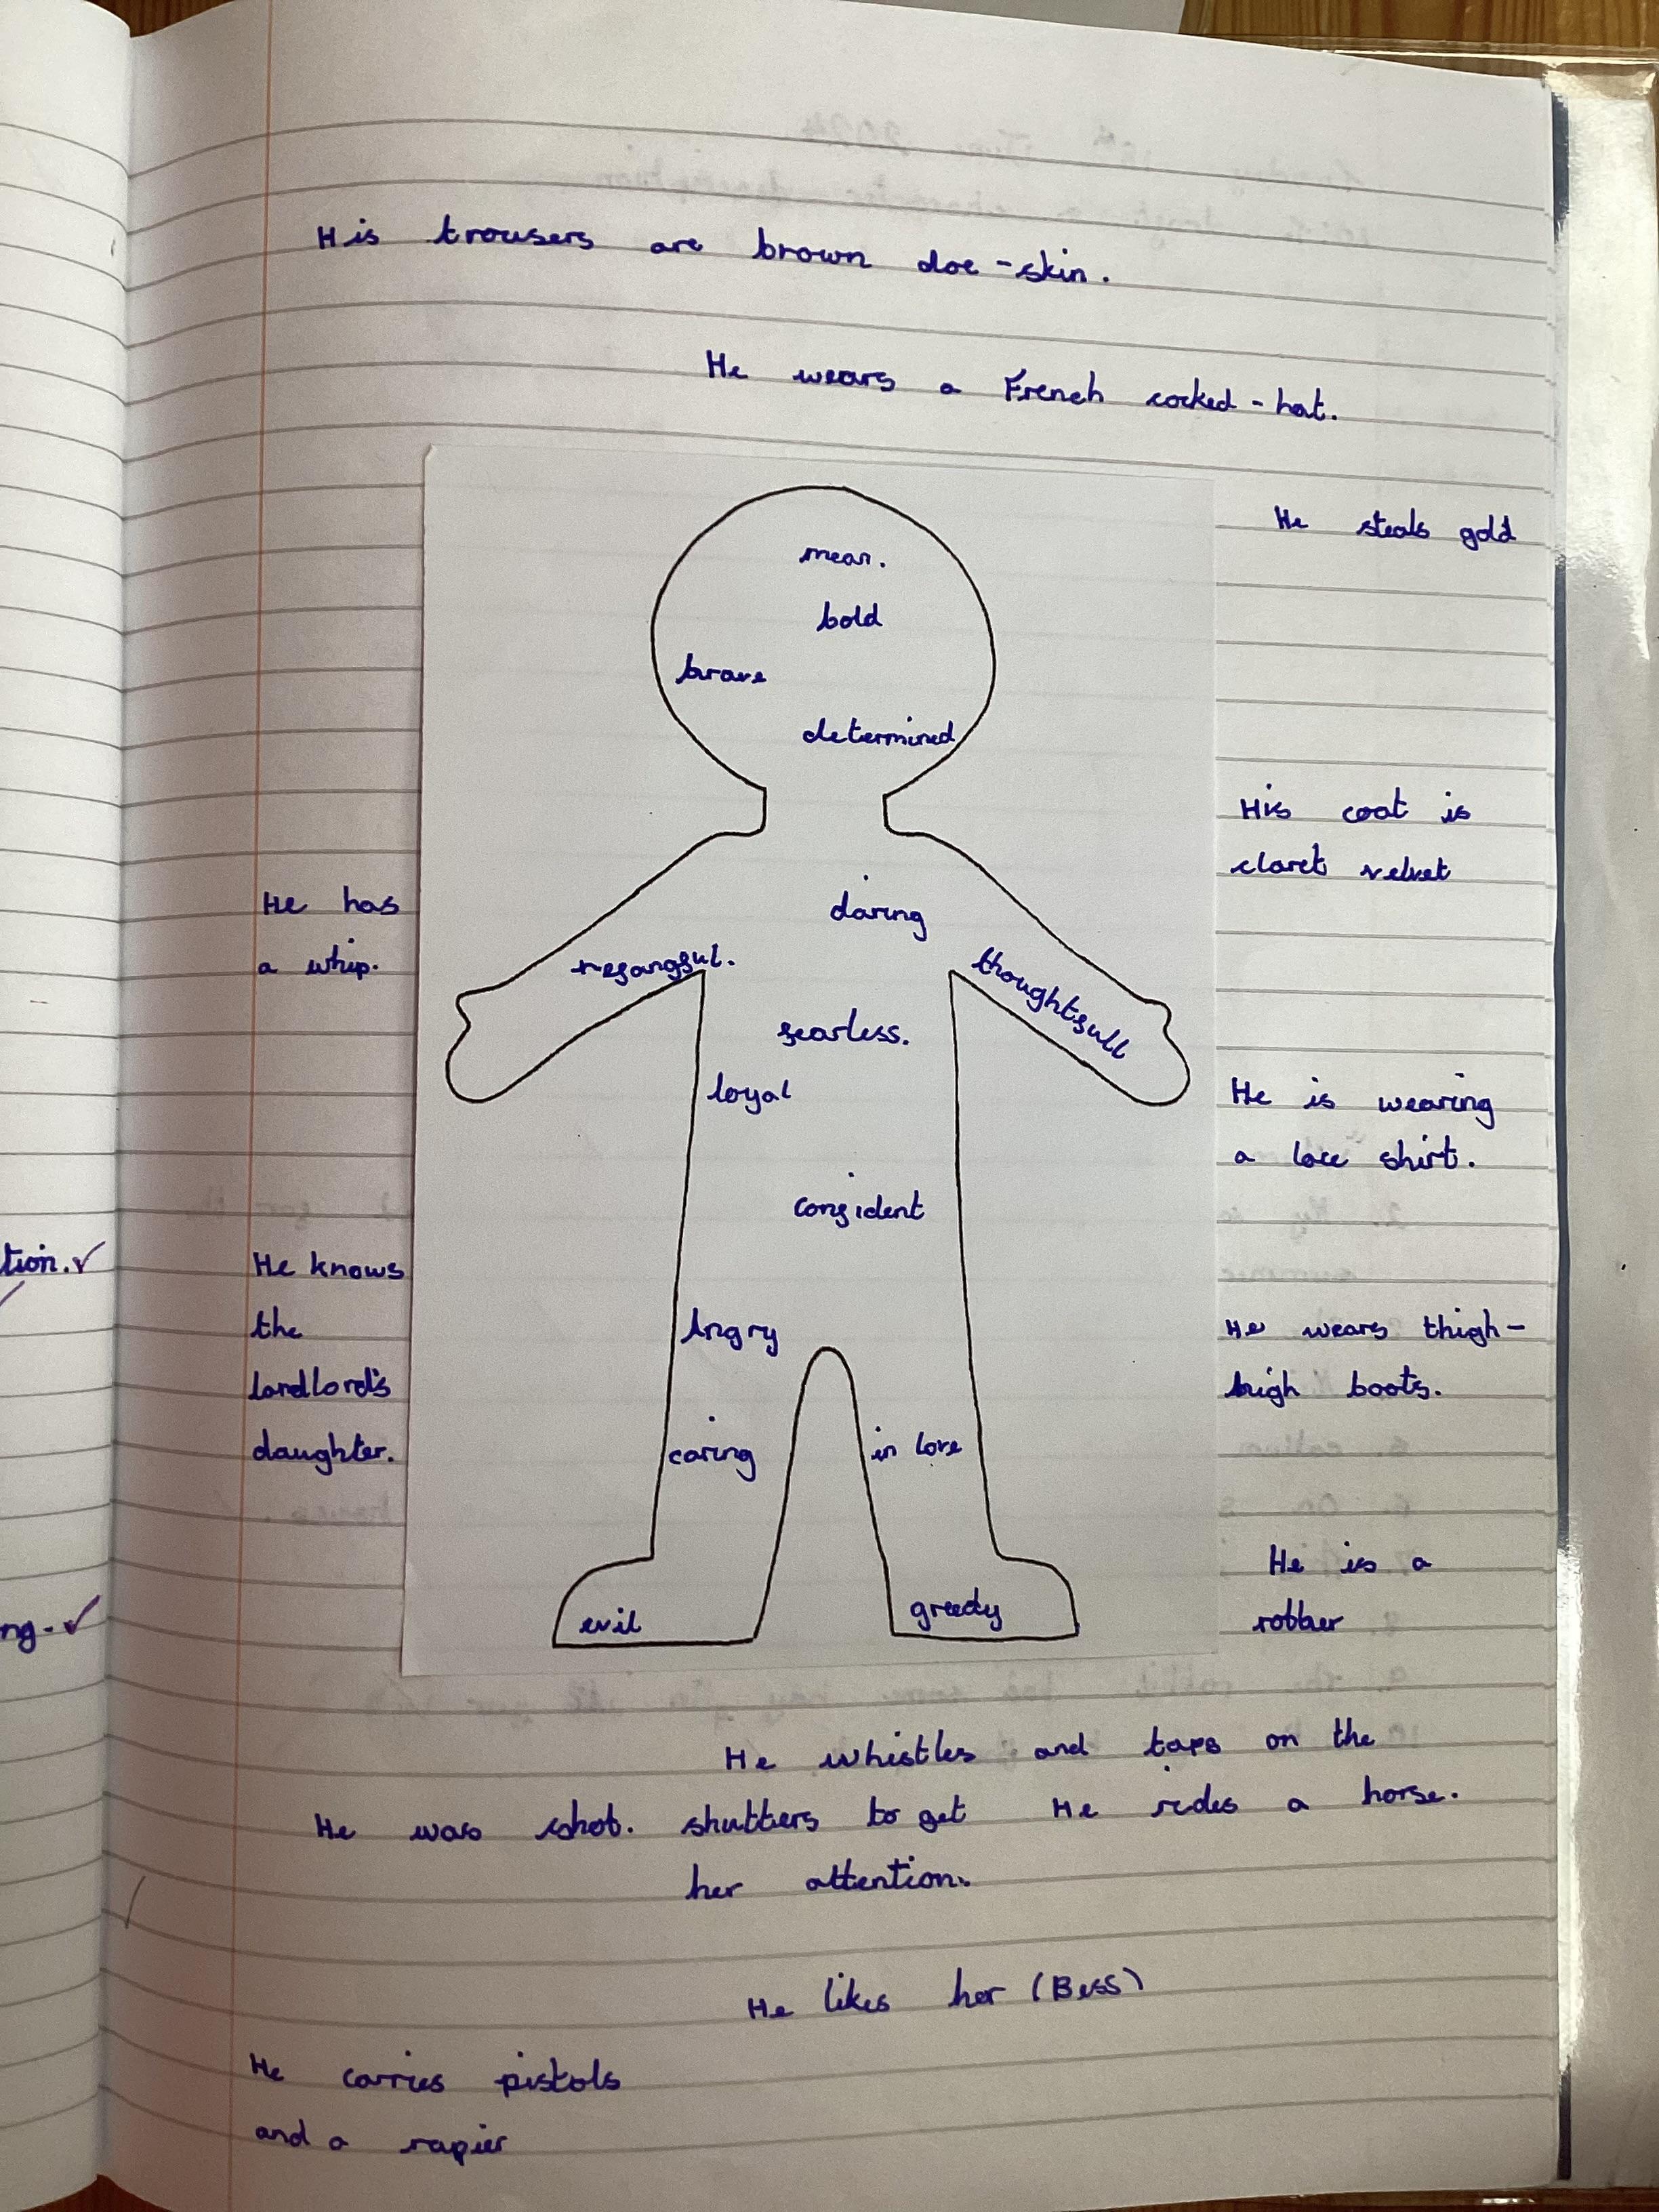 His trousers are brown doe-skin.
He wears a French cocked-hat.
He steals gold
mean.
bold
brave
determined
His coat is
claret velvet
He has
a whip.
daring
thoughtfull
fearless.
loyal
He is wearing
a lace shirt.
confident
tion. ✓
He knows
the
landlord's
daughter.
Angry
He wears thigh-
high boots.
caring
in love
He is a
robber
evil
greedy
ng. ✓
He whistles and taps on the
shutters to get
her attention.
He was shot.
He rides a horse.
He likes her (Bess)
He carries pistols
and a rapier